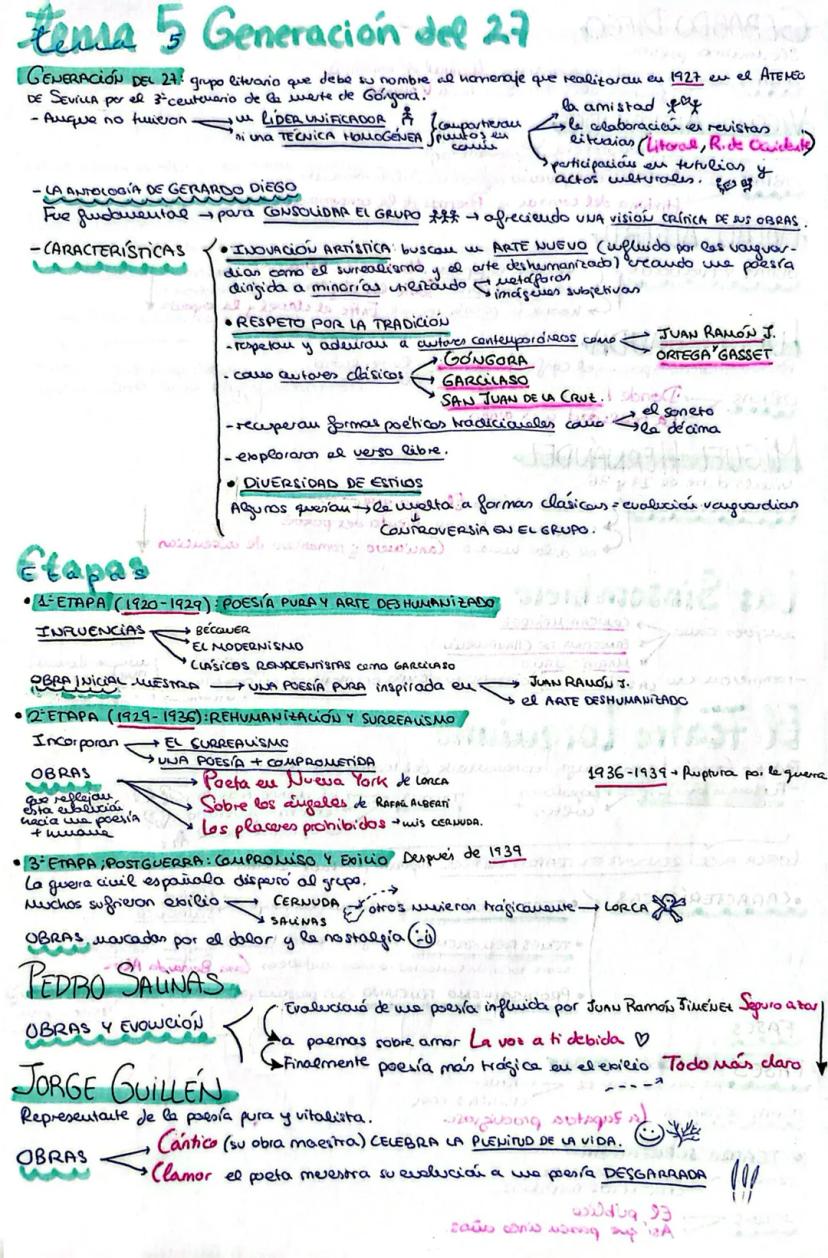 tema 5 Generación del 27
GENERACIÓN DEL 27: grupo literario que debe su nombre al homenaje que realizaron en 1927 en el ATENEO
DE SEVILLA por el 3er centenario de la muerte de Góngora.
- Aunque no tuvieron → un LÍDER UNIFICADOR
→ ni una TÉCNICA HOMOGÉNEA } compartieron puntos en común
→ la amistad
→ la elaboración en revistas
literarias (Litoral, R. de Occidente)
→ participación en tertulias y
actos culturales.
- LA ANTOLOGÍA DE GERARDO DIEGO
Fue fundamental → para CONSOLIDAR EL GRUPO → ofreciendo UNA VISIÓN CRÍTICA DE SUS OBRAS.
- CARACTERÍSTICAS
• INOVACIÓN ARTÍSTICA: buscan un ARTE NUEVO (influido por las vanguar-
dias como el surrealismo y el arte deshumanizado) creando una poesía
dirigida a minorías utilizando → metáforas
→ imágenes subjetivas
• RESPETO POR LA TRADICIÓN
- respetan y admiran a autores contemporáneos como → JUAN RAMÓN J.
→ ORTEGA Y GASSET
- como autores clásicos → GÓNGORA
→ GARCILASO
→ SAN JUAN DE LA CRUZ.
- recuperan formas poéticas tradicionales como → el soneto
→ la décima
- exploraron el verso libre.
• DIVERSIDAD DE ESTILOS
Algunos querían → la vuelta a formas clásicas ≠ evolución vanguardias
↓
CONTROVERSIA EN EL GRUPO.
Etapas
• 1ª ETAPA (1920-1929): POESÍA PURA Y ARTE DESHUMANIZADO
INFLUENCIAS → BÉCQUER
→ EL MODERNISMO
→ CLÁSICOS RENACENTISTAS como GARCILASO
OBRA INICIAL MUESTRA → UNA POESÍA PURA inspirada en → JUAN RAMÓN J.
→ el ARTE DESHUMANIZADO
• 2ª ETAPA (1929-1936): REHUMANIZACIÓN Y SURREALISMO
Incorporan → EL SURREALISMO
→ UNA POESÍA + COMPROMETIDA
OBRAS → Poeta en Nueva York de LORCA
1936-1939 → Ruptura por la guerra
que reflejan
esta evolución
hacia una poesía
+ humana
→ Sobre los ángeles de RAFAEL ALBERTI
→ Los placeres prohibidos → LUIS CERNUDA.
• 3ª ETAPA, POSTGUERRA: COMPROMISO Y EXILIO Después de 1939
La guerra civil española disparó al grupo.
Muchos sufrieron exilio → CERNUDA
→ SALINAS
otros murieron trágicamente → LORCA
OBRAS marcadas por el dolor y la nostalgia
PEDRO SALINAS
OBRAS Y EVOLUCIÓN
Evolucionó de una poesía influida por JUAN RAMÓN JIMÉNEZ Seguro azar
a poemas sobre amor La voz a ti debida
Finalmente poesía más trágica en el exilio Todo más claro
JORGE GUILLÉN
Representante de la poesía pura y vitalista.
OBRAS → Cántico (su obra maestra) CELEBRA LA PLENITUD DE LA VIDA.
→ Clamor el poeta muestra su evolución a una poesía DESGARRADA !!!